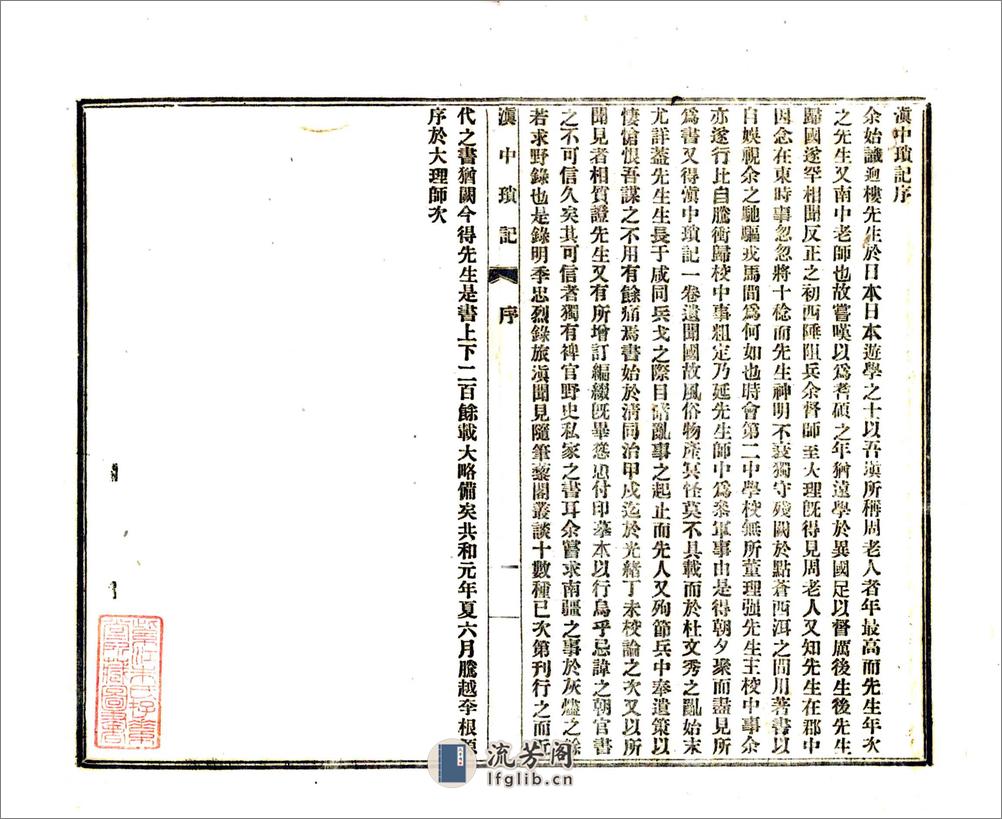 滇中瑣記序
余始識迥樓先生於日本日本遊學之士以吾滇所稱周老人者年最高而先生年次
之先生又南中老師也故嘗嘆以為耆碩之年猶遠學於異國足以督厲後生後先生
歸國遂罕相聞反正之初西陲阻兵余督師至大理旣得見周老人又知先生在郡中
因念在東時事忽忽將十稔而先生神明不衰獨守殘闕於點蒼西洱之間用著書以
自娛視余之馳驅戎馬間為何如也時會第二中學校無所董理强先生主校中事余
亦遂行比自騰衝歸校中事粗定乃延先生師中為叅軍事由是得朝夕聚而盡見所
為書又得滇中瑣記一卷遺聞國故風俗物產冥怪莫不具載而於杜文秀之亂始末
尤詳蓋先生生長于咸同兵戈之際目睹亂事之起止而先人又殉節兵中奉遺策以
悽愴恨吾謀之不用有餘痛焉書始於清同治甲戌迄於光緒丁未校論之次又以所
聞見者相質證先生又有所增訂編綴旣畢慫恿付印摹本以行烏乎忌諱之朝官書
之不可信久矣其可信者獨有稗官野史私家之書耳余嘗求南疆之事於灰燼之餘
若求野錄也是錄明季忠烈錄旅滇聞見隨筆藜閣叢談十數種已次第刊行之而
滇中瑣記
序
一
代之書猶闕今得先生是書上下二百餘載大略備矣共和元年夏六月騰越李根源
序於大理師次
流芳阁
lfglib.cn